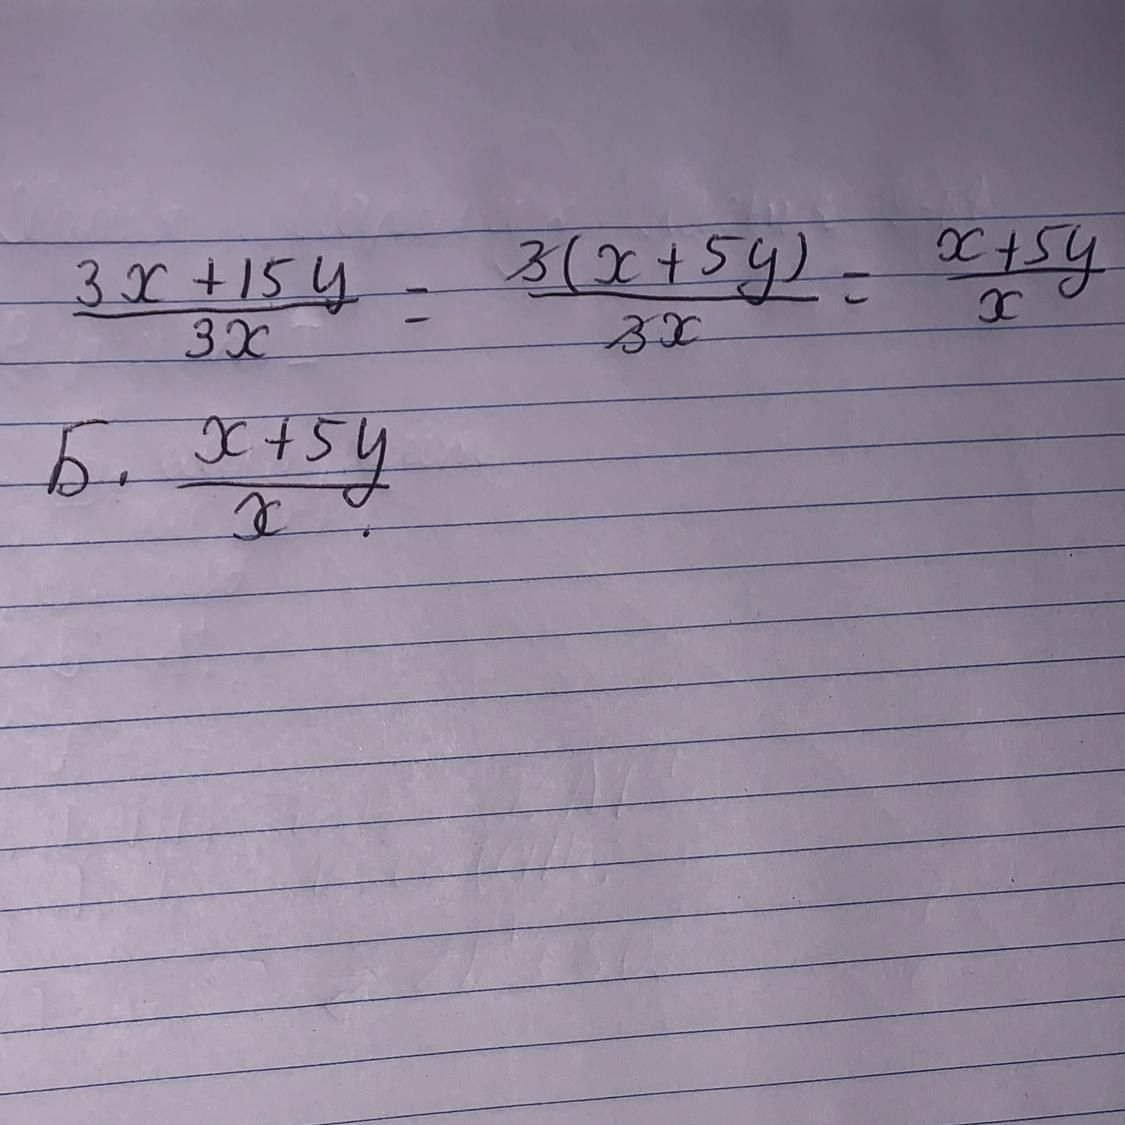 3x+15y/3x = 3(x+5y)/3x = x+5y/x
Б. x+5y/x.